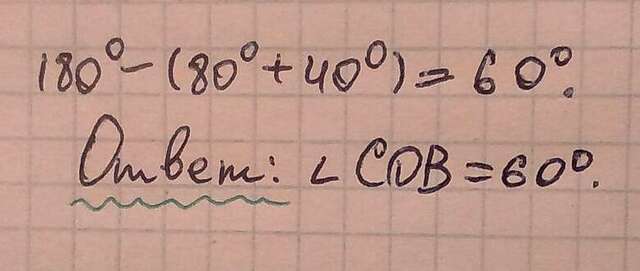 180° - (80° + 40°) = 60°.
Ответ: ∠ COB = 60°.